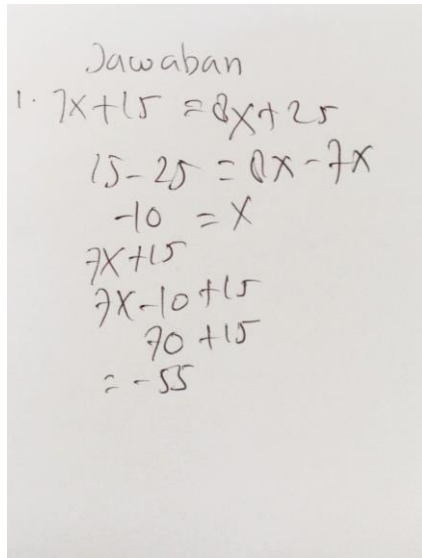 Jawaban
1. 7x+15 = 8x+25
15-25 = 8x-7x
-10 = x
7x+15
7x-10+15
70+15
= -55